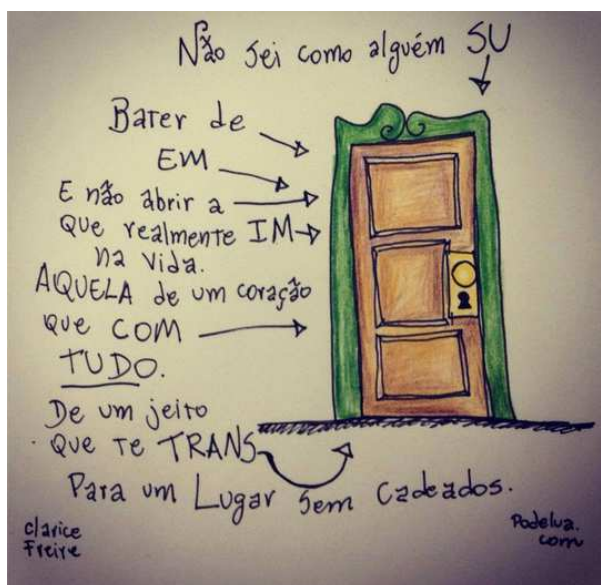 Não sei como alguém SU
Bater de
EM
E não abrir a
que realmente IM
na vida.
AQUELA de um coração
que COM
TUDO.
De um jeito
que te TRANS
Para um Lugar sem cadeados.
clarice
Freire
Podelua.
com